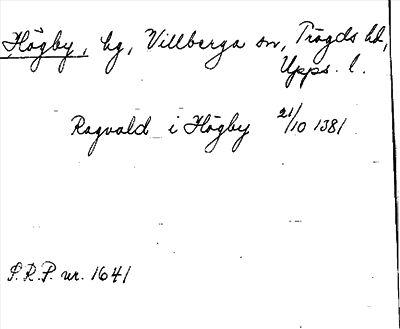 Högby, hg, Villberga sn, Trögds hd,
Upps. l.
Ragvald i Högby 21/10 1381
S.R.P. nr. 1641